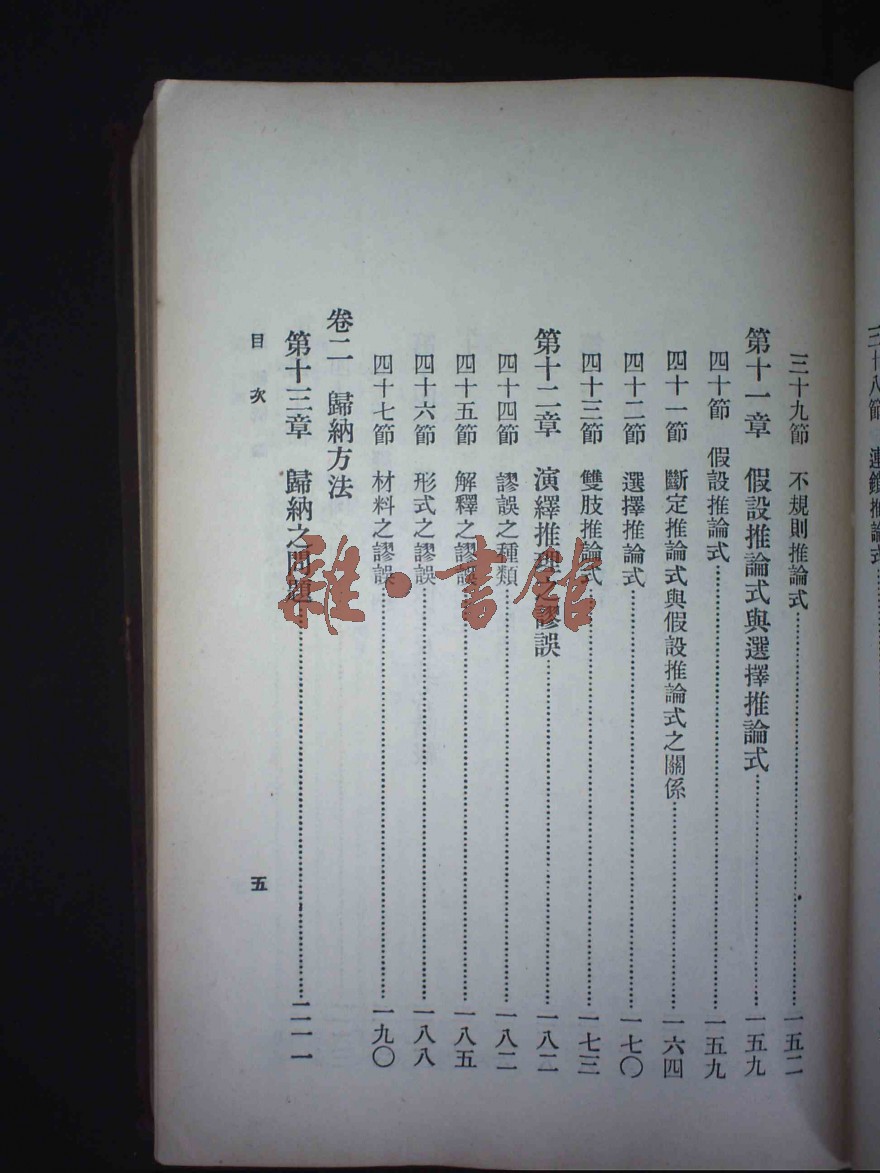 三十八節 連鎖推論式
三十九節 不規則推論式……一五二
第十一章 假設推論式與選擇推論式……一五九
四十節 假設推論式……一五九
四十一節 斷定推論式與假設推論式之關係……一六四
四十二節 選擇推論式……一七〇
四十三節 雙肢推論式……一七三
第十二章 演繹推理之謬誤……一八二
四十四節 謬誤之種類……一八二
四十五節 解釋之謬誤……一八五
四十六節 形式之謬誤……一八八
四十七節 材料之謬誤……一九〇
卷二 歸納方法
第十三章 歸納之問題……二一一
目次 五
雜·書館